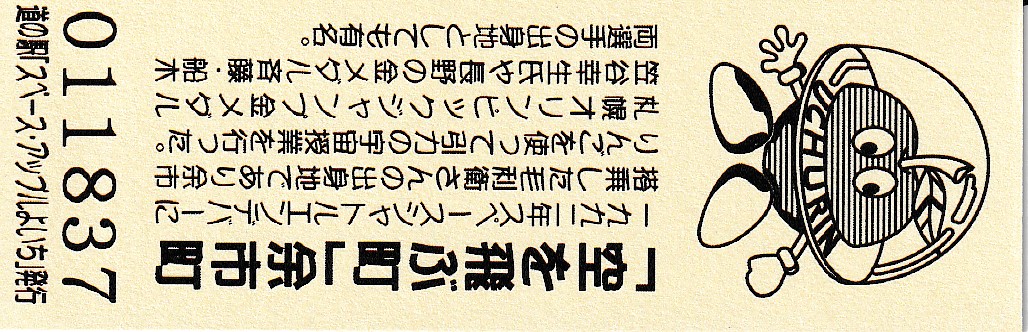 UCHURIN
「空を飛ぶ町」余市町
一九九二年スペースシャトルエンデバーに
搭乗した毛利衛さんの出身地であり余市
りんごを使って引力の宇宙授業を行った。
札幌オリンピックジャンプ金メダル
笠谷幸生氏や長野の金メダル斉藤・船木
両選手の出身地としても有名。
011837
道の駅「スペース・アップルよいち」発行